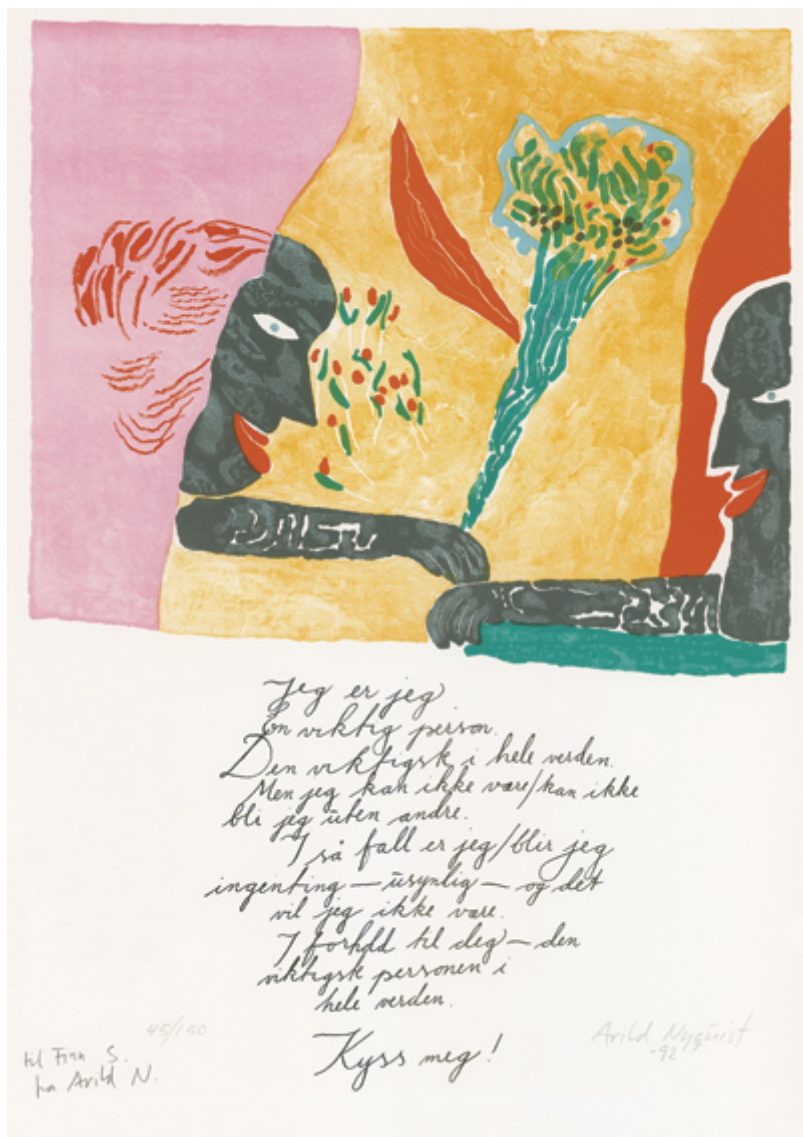 Jeg er jeg
En viktig person.
Den viktigsk i hele verden.
Men jeg kan ikke være/kan ikke
bli jeg uten andre.
I så fall er jeg/blir jeg
ingenting — usynlig — og det
vil jeg ikke være.
I forhold til deg — den
viktigsk personen i
hele verden.
Kyss meg!
45/150
til Finn S.
fra Arild N.
Arild Nyquist
-92